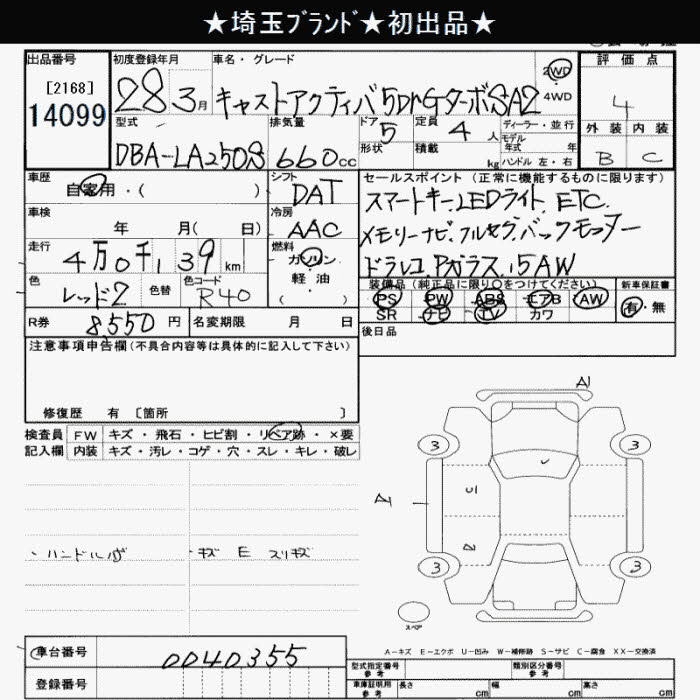 ★埼玉ﾌﾞﾗﾝﾄﾞ★初出品★
出品番号 初度登録年月 車名・グレード 評価点
[2168]
14099
28 3月 キャストアクティバ5DrGターボSA2 2WD 4WD 4
型式 排気量 ドア 定員 ディーラー・並行 外装 内装
DBA-LA250S 660cc 5 4人 モデル年式 年
形状 積載 kg ハンドル 左・右 B C
車歴 シフト セールスポイント (正常に機能するものに限ります)
自家用・( ) DAT スマートキー.LEDライト.ETC.
車検 冷房
年 月( 日) AAC メモリーナビ.フルセグ.バックモニター
走行 燃料
4万0千139km ガソリン ドラレコ.Pガラス.15AW
色 色替 色コード 軽・油 装備品 (純正品に限り○をつけてください) 新車保証書
レッド2 R40 ( ) PS PW ABS エアB AW 有・無
SR ナビ TV カワ
R券 8,550円 名変期限 月 日 後日品
注意事項申告欄(不具合内容等は具体的に記入して下さい)
修復歴 有 [箇所 ]
検査員 FW キズ・飛石・ヒビ割・リペア跡・×要
記入欄 内装 キズ・汚レ・コゲ・穴・スレ・キレ・破レ
A1
3 3
A1 U1
3 3
・キズ E スリキズ
スペア
A－キズ E－エクボ U－凹み W－補修跡 S－サビ C－腐食 XX－交換済
車台番号 0040355
登録番号
型式指定番号 参考 類別区分番号 参考
車庫証明用 参考 長さ cm 幅 cm 高さ cm